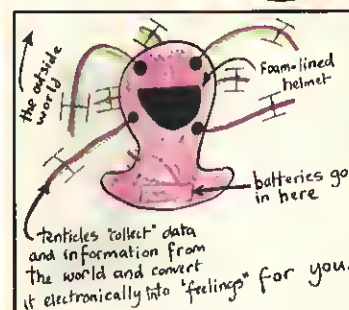 the outside
world
Foam-lined
helmet
batteries go
in here
tenticles "collect" data
and information from
the world and convert
it electronically into "feelings" for you.